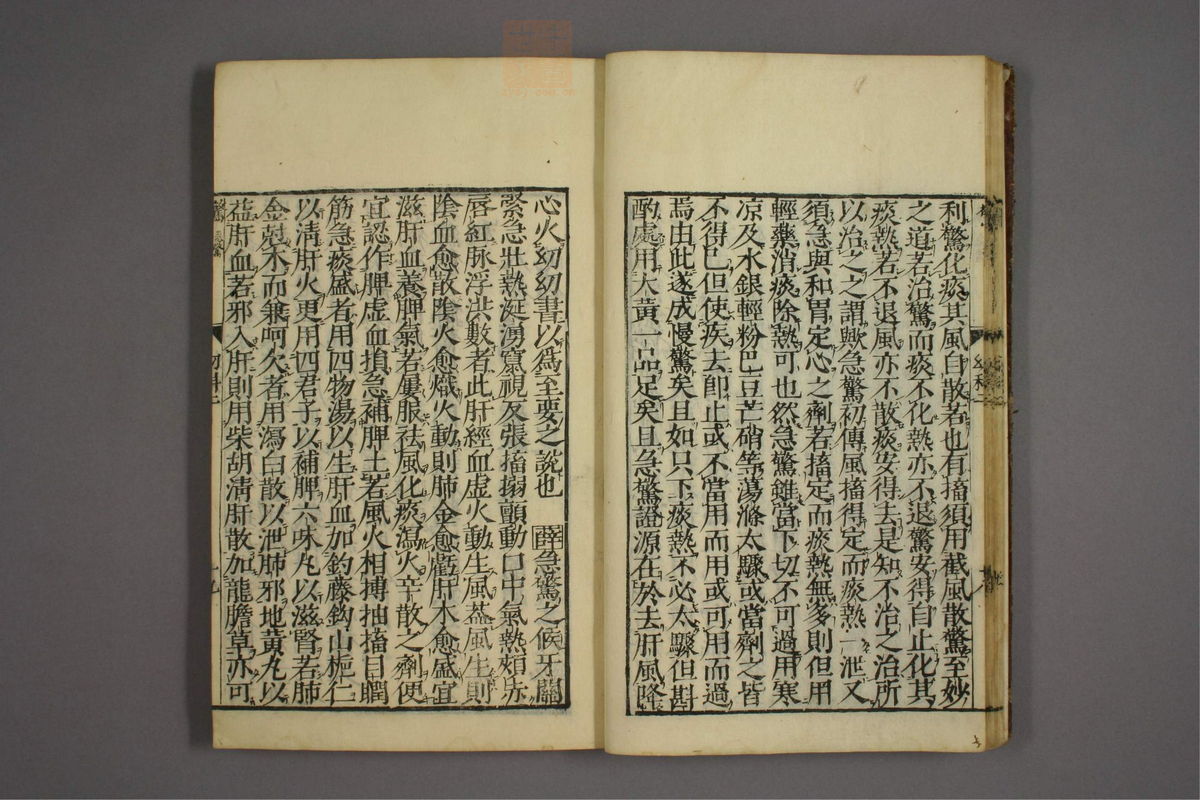 利驚化痰其風自散若也有搐須用截風散驚至妙
之道若治驚而痰不化熱亦不退驚安得自止化其
痰熱若不退風亦不散痰安得去是知不治之治所
以治之之謂歟急驚初傳風搐得定而痰熱一泄又
須急與和胃定心之劑若搐定而痰熱無多則但用
輕藥消痰除熱可也然急驚雖當下切不可過用寒
凉及水銀輕粉巴豆芒硝等蕩滌太驟或當劑之皆
不得已但使疾去即止或不當用而用或可用而過
焉由此遂成慢驚矣且如只下痰熱不必太驟但斟
酌處用大黃一品足矣且急驚證源在於去肝風降
心火幼幼書以爲至要之說也 薛急驚之候牙關
緊急壯熱涎湧竄視反張搐搦顫動口中氣熱頰赤
唇紅脉浮洪數者此肝經血虛火動生風蓋風生則
陰血愈散陰火愈熾火動則肺金愈虧肝木愈盛宜
滋肝血養脾氣若屢服祛風化痰瀉火辛散之劑便
宜認作脾虛血損急補脾土若風火相搏抽搐目瞤
筋急痰盛者用四物湯以生肝血加釣藤鈎山梔仁
以淸肝火更用四君子以補脾六味丸以滋腎若肺
金尅木而兼呵欠者用瀉白散以泄肺邪地黃丸以
益肝血若邪入肝則用柴胡淸肝散加龍膽草亦可